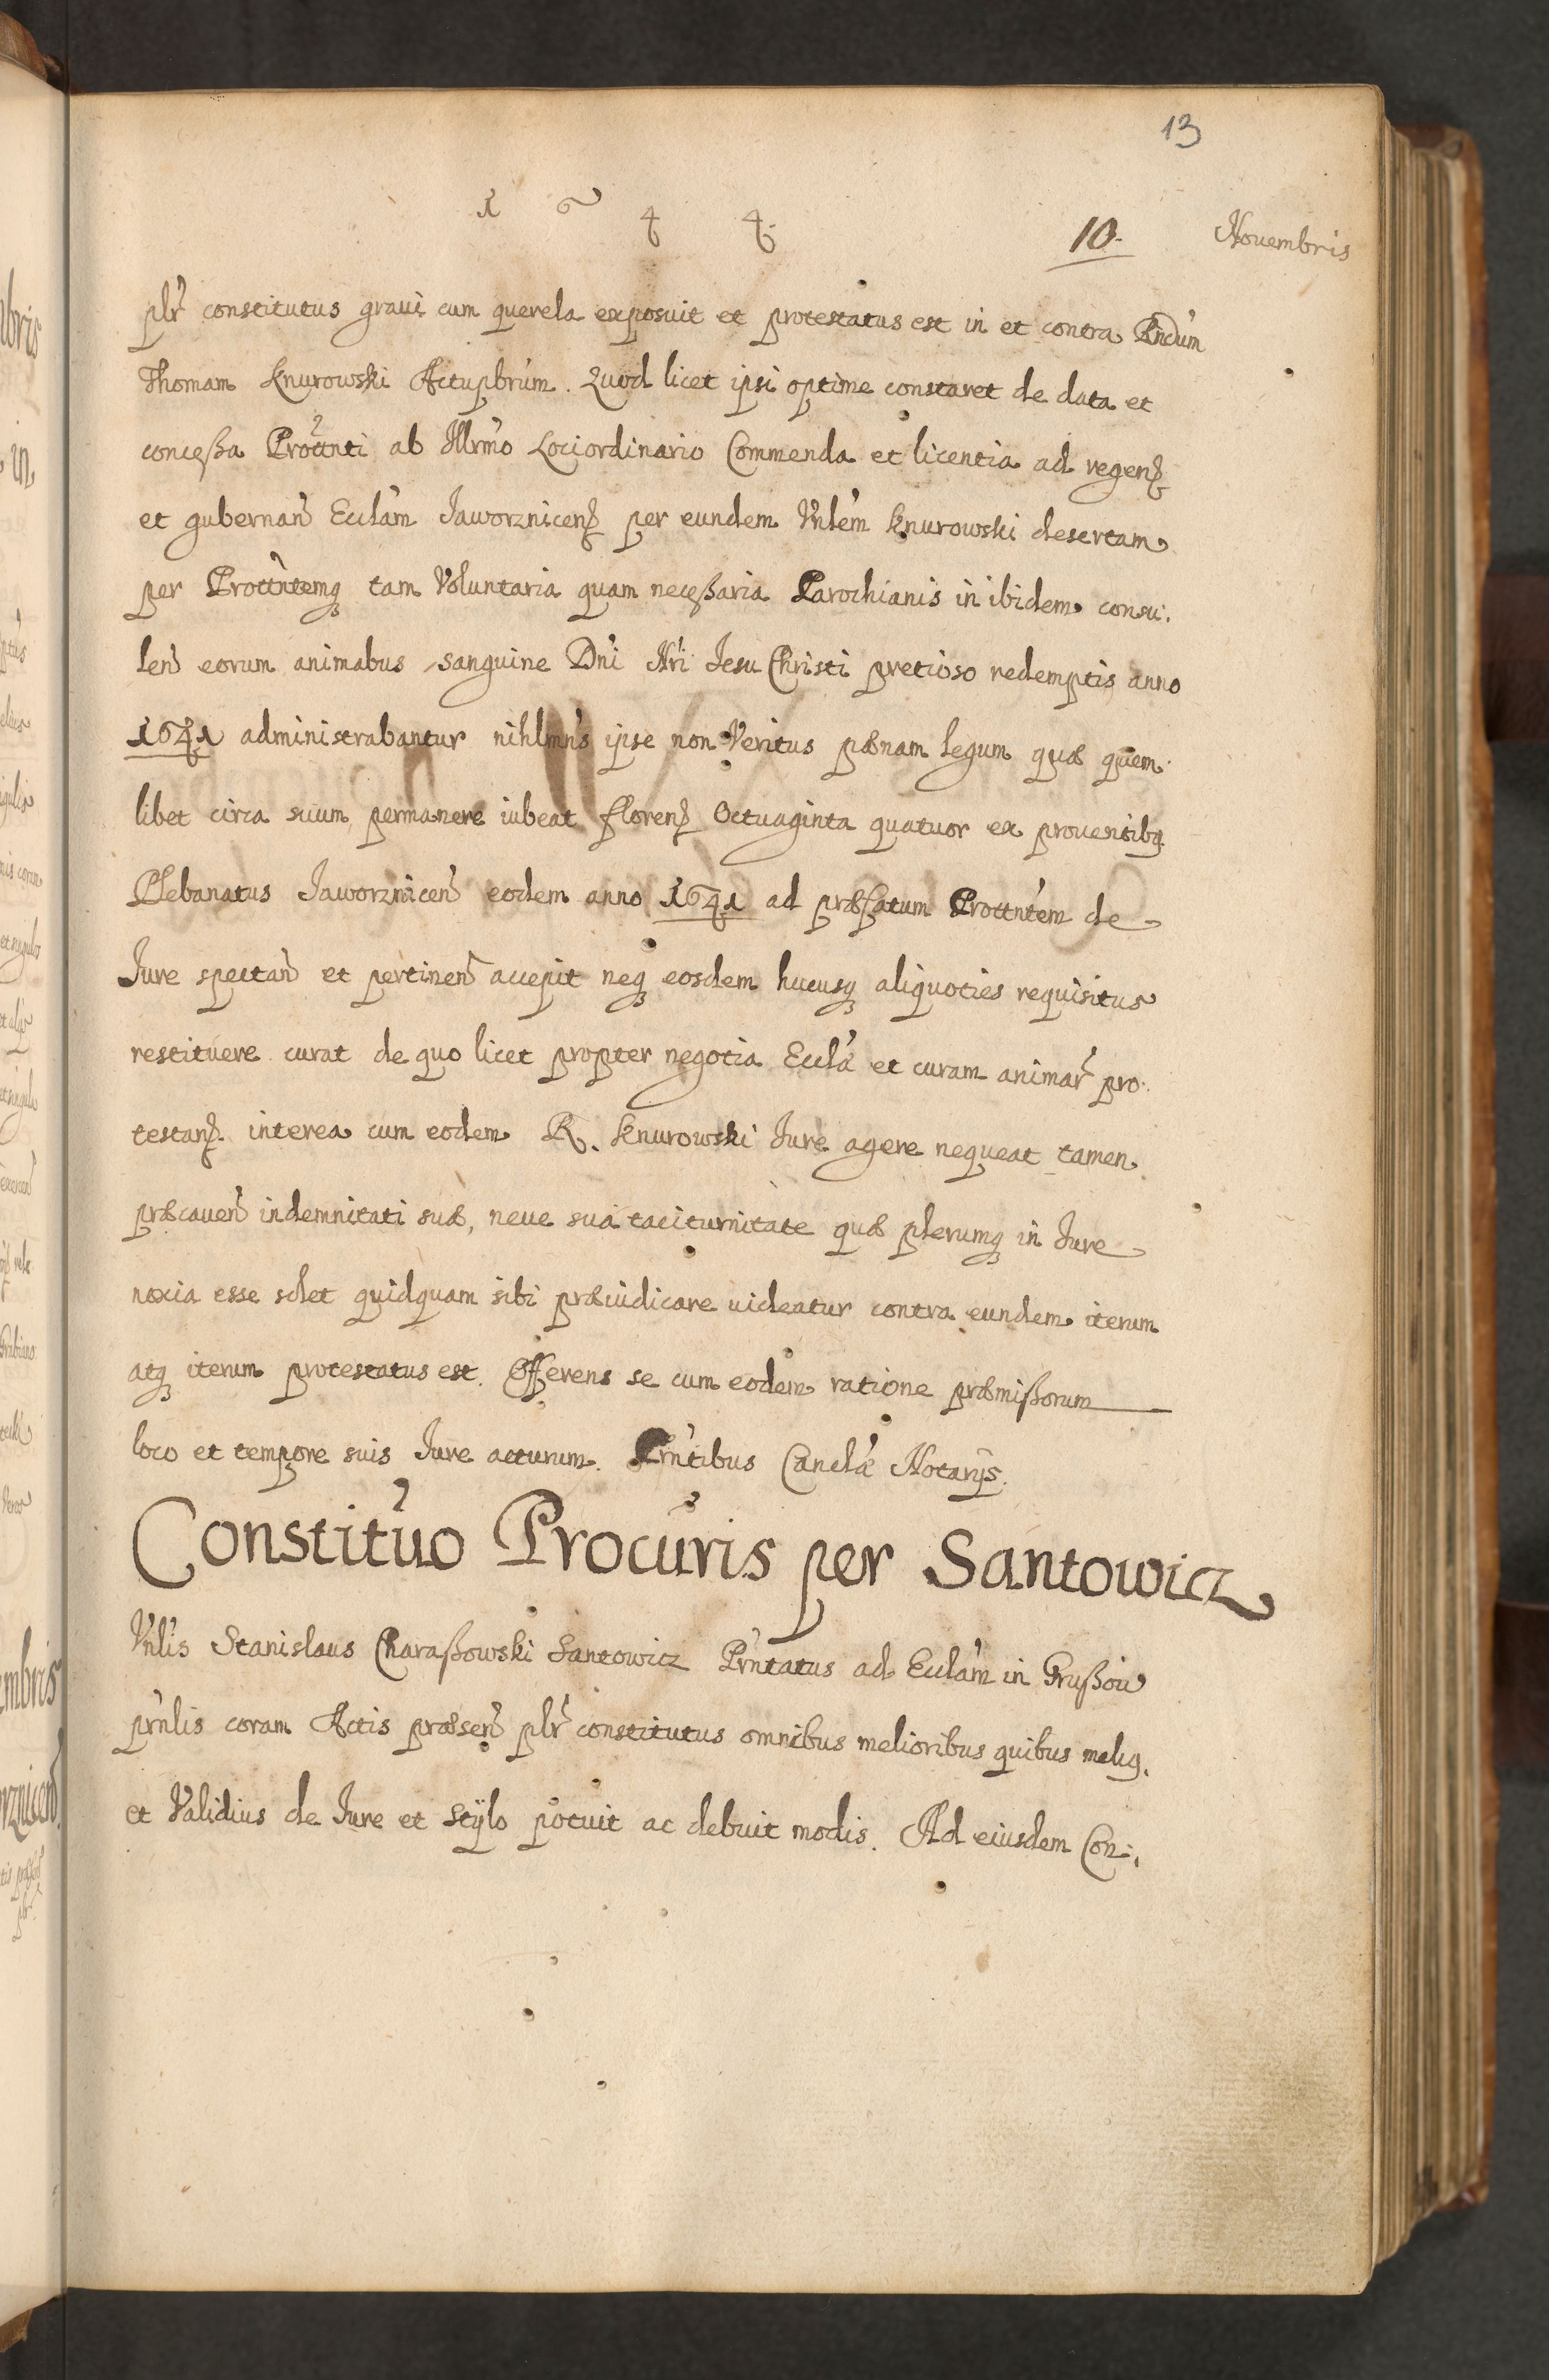 13
1 6 4 4. 10. Nouembris
plr constitutus graui cum querela exposuit et protestatus est in et contra Rndum
Thomam Knurowski Actuprbum. Quod licet ipsi optime constaret de data et
conceßa Prottnti ab Illrmo Lociordinario Commenda et licentia ad regen
et gubernan Ecclam Jaworznicen per eundem Vnlem Knurowski desertam
per Prottntemq tam Voluntaria quam neceßaria Parochianis in ibidem consu:
len eorum animabus sanguine Dni Nri Jesu Christi pretioso redemptis anno
1641 administrabantur nihlmns ipse non Veritus pœnam legum quæ quem:
libet circa suum permanere iubeat floren Octuaginta quatuor ex prouentibq
Plebanatus Jaworznicen eodem anno 1641 ad præfatum Prottntem de
Jure spectan et pertinen accepit neq eosdem hucusq aliquoties requisitus
restituere curat de quo licet propter negotia Ecclæ et curam animar pro:
testan. interea cum eodem R. Knurowski Jure agere nequeat tamen
præcauen indemnitati suæ, neue sua taciturnitate quæ plerumq in Jure
noxia esse solet quidquam sibi præiudicare uideatur contra eundem iterum
atq iterum protestatus est. Offerens se cum eodem ratione præmißorum
loco et tempore suis Jure acturum. Prntibus Canclæ Notarijs.
Constituo Procuris per Santowicz
Vnlis Stanislaus Charaßowski Santowicz Prntatus ad Ecclam in Grußow
prnlis coram Actis præsen plr constitutus omnibus melioribus quibus meliq.
et Validius de Jure et Stÿlo potuit ac debuit modis. Ad eiusdem Con: